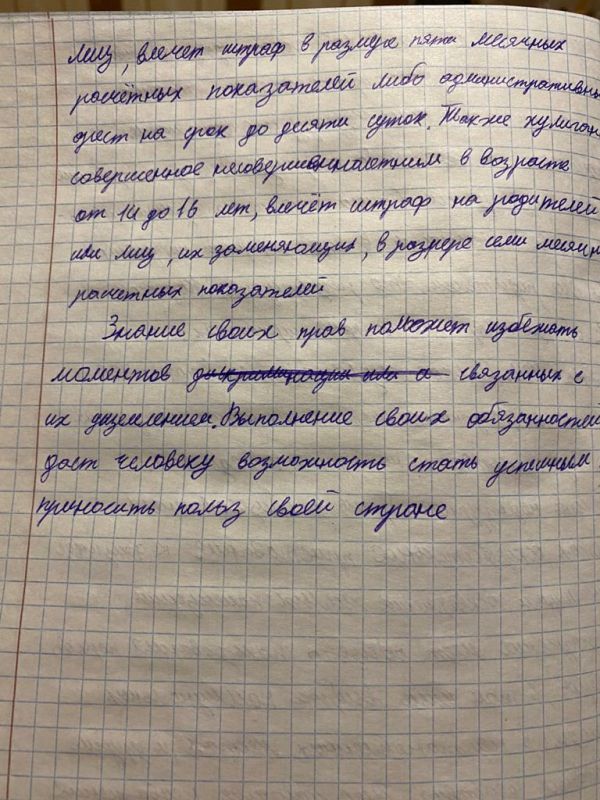 лиц, влечет штраф в размере пяти месячных
расчётных показателей либо административны
арест на срок до десяти суток. Также хулиган
совершенное несовершеннолетним в возрасте
от 14 до 16 лет, влечёт штраф на родителей
или лиц, их заменяющих, в размере семи месячн
расчетных показателей
Знание своих прав поможет избежать
моментов связанных с
их ущемлением. Выполнение своих обязанностей
даст человеку возможность стать успешным
приносить польз своей стране